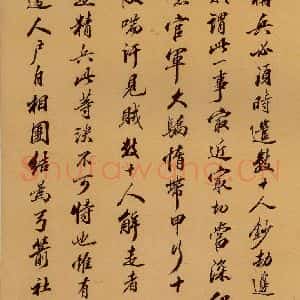 兵必須時遣數十人鈔劫邊
謂此一事最近最切當深
官軍大驕惰帶甲行十
喘汗見賊數十人解走者
精兵此等決不可恃也惟有
人戶自相團結為弓箭社
Shufawang.CN